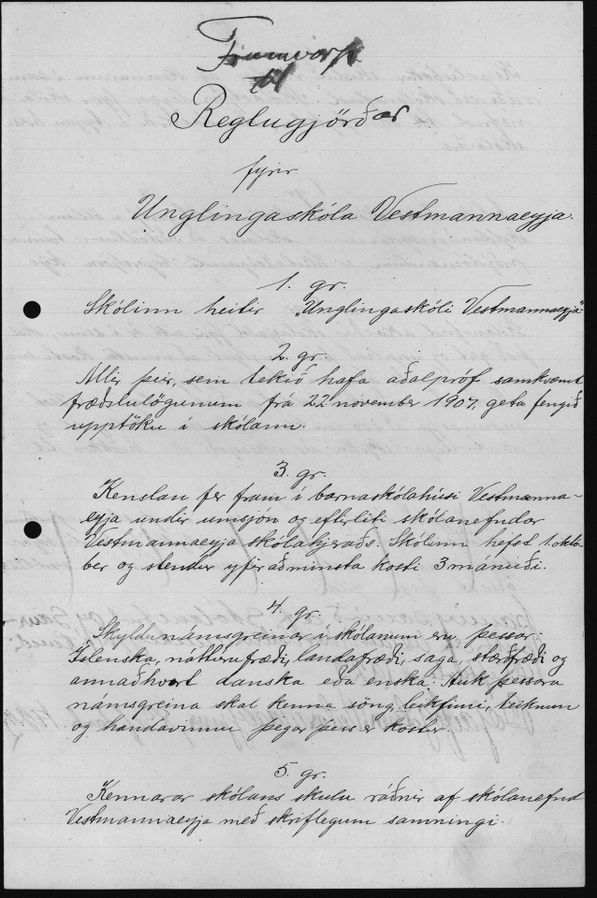 Frumvarp
til
Reglugjörðar
fyrir
Unglingaskóla Vestmannaeyja.
1. gr.
Skólinn heitir "Unglingaskóli Vestmannaeyja"
2. gr.
Allir þeir, sem tekið hafa aðalpróf samkvæmt
fræðslulögunum frá 22 november 1907, geta fengið
upptöku í skólann.
3. gr.
Kenslan fer fram í barnaskólahúsi Vestmanna-
eyja undir umsjón og eftirliti skólanefndar
Vestmannaeyja skólahjeraðs. Skólinn hefst 1. októ-
ber og stendur yfir að minsta kosti 3 mánuði.
4. gr.
Skyldunámsgreinar í skólanum eru þessar
Íslenska, náttúrufræði, landafræði, saga, stærðfræði og
annaðhvort danska eða enska. Auk þessara
námsgreina skal kenna söng, leikfimi, teiknun
og handavinnu þegar þess er kostur.
5. gr.
Kennarar skólans skulu ráðnir af skólanefnd
Vestmannaeyja með skriflegum samningi.